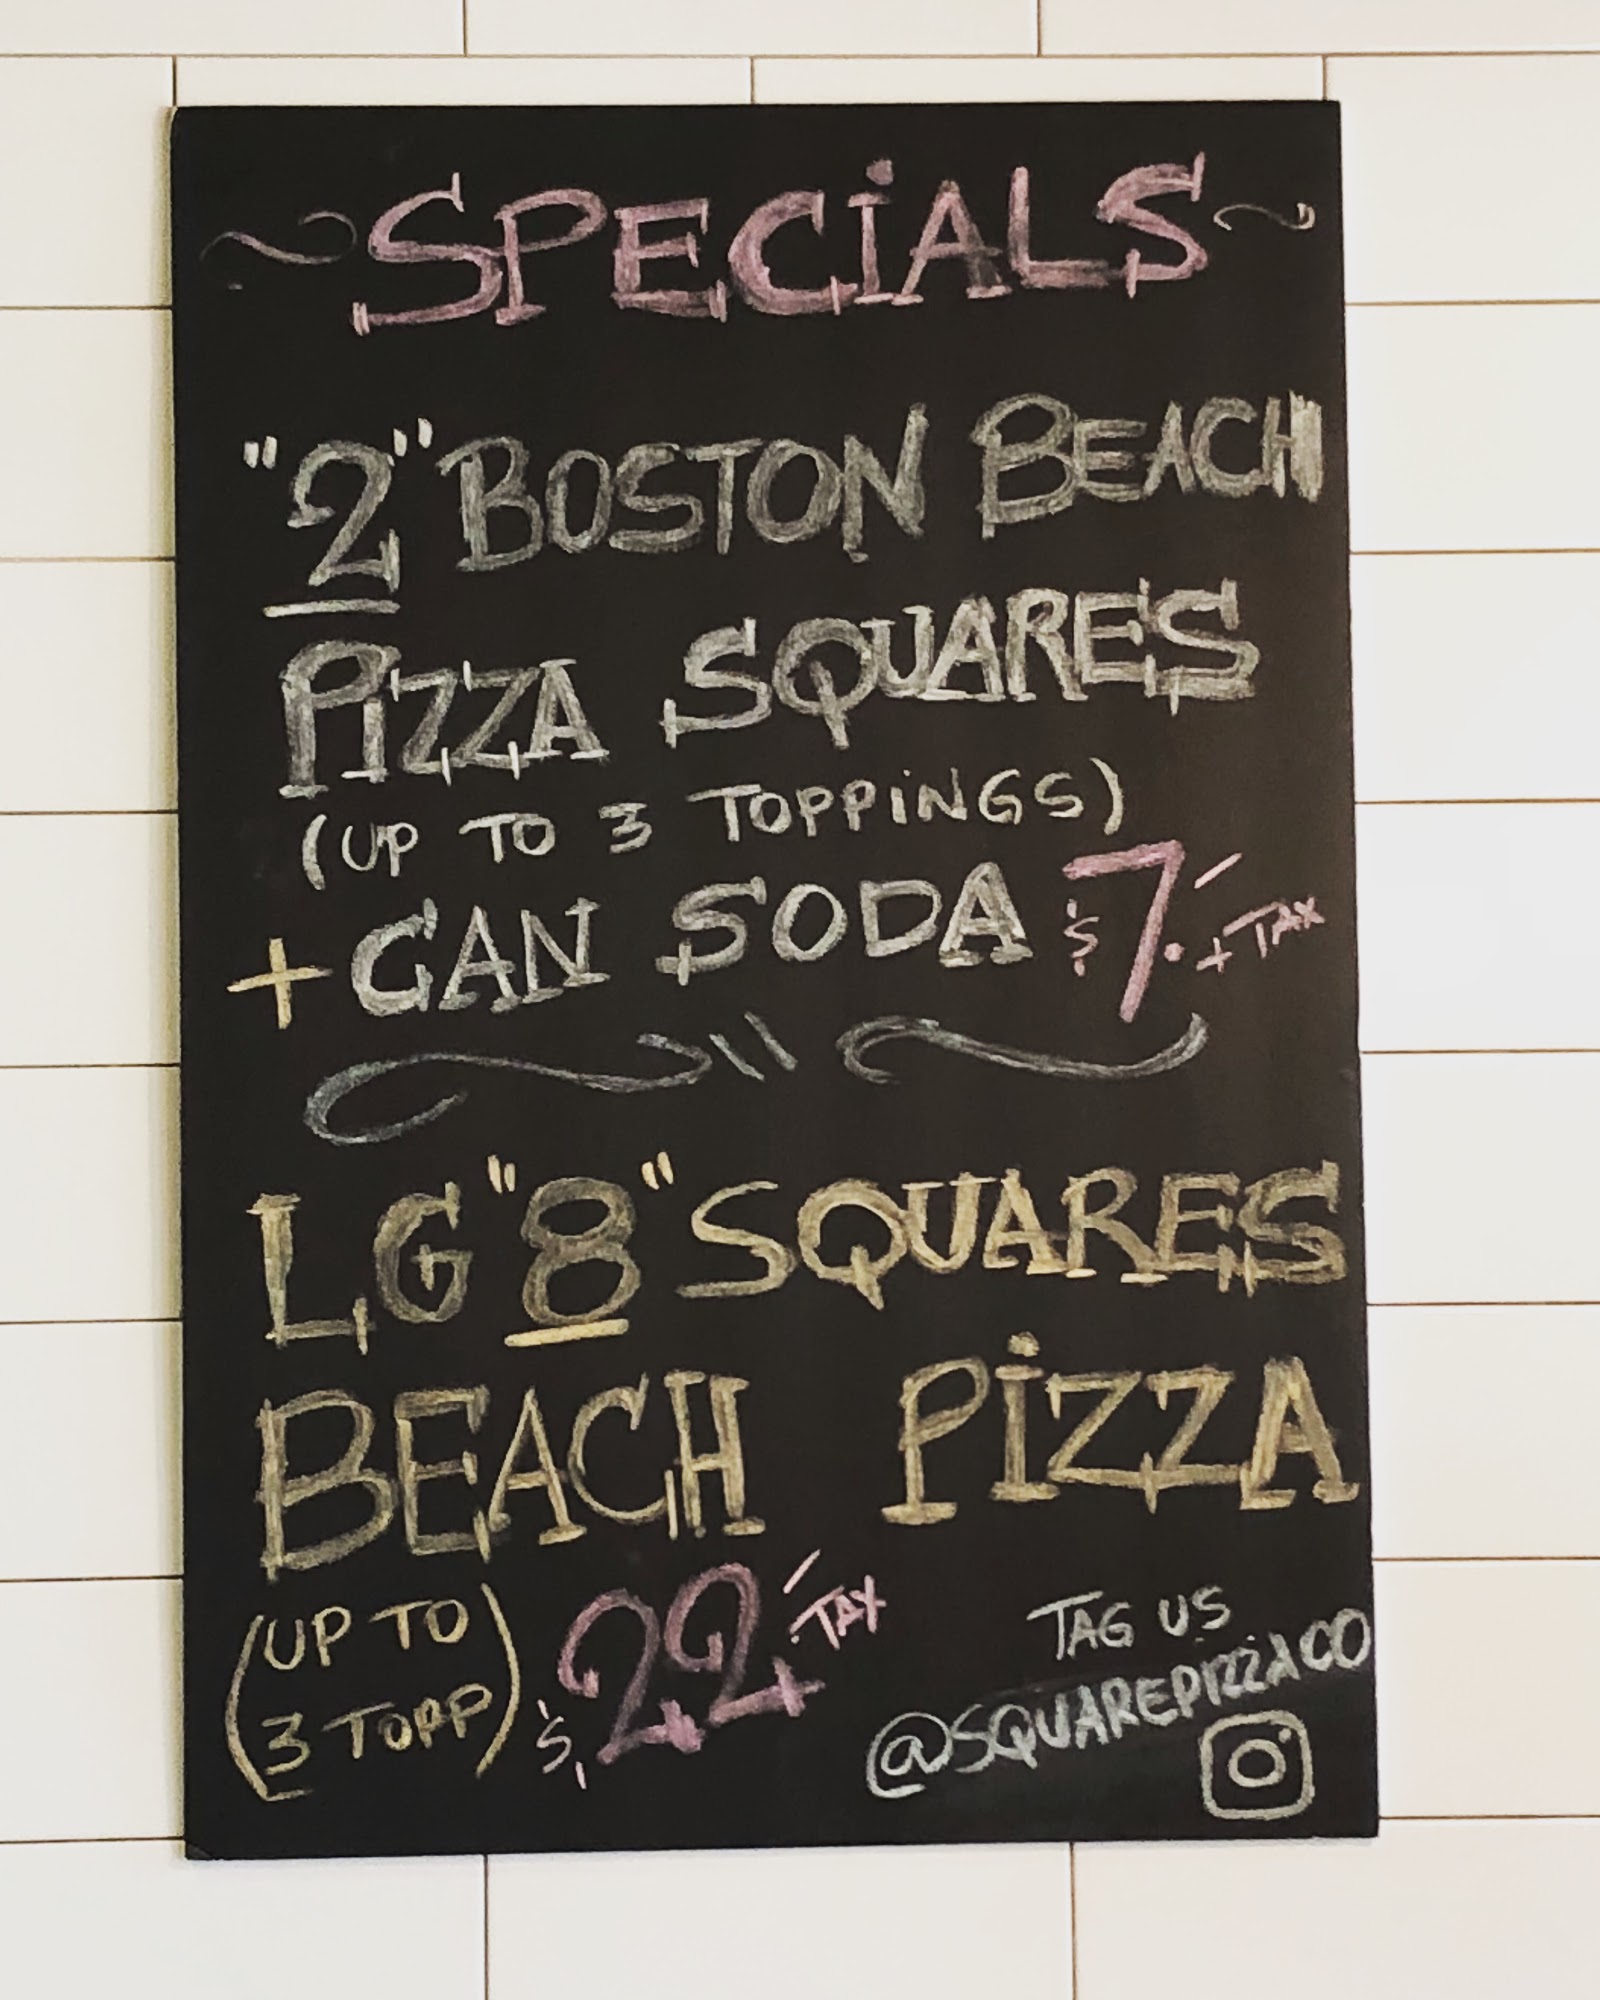 SPECIALS
"2" BOSTON BEACH
PIZZA SQUARES
(UP TO 3 TOPPINGS)
+ CAN SODA $7.- + TAX
LG "8" SQUARES
BEACH PIZZA
(UP TO
3 TOPP) $22.- + TAX
TAG US
@SQUAREPIZZACO